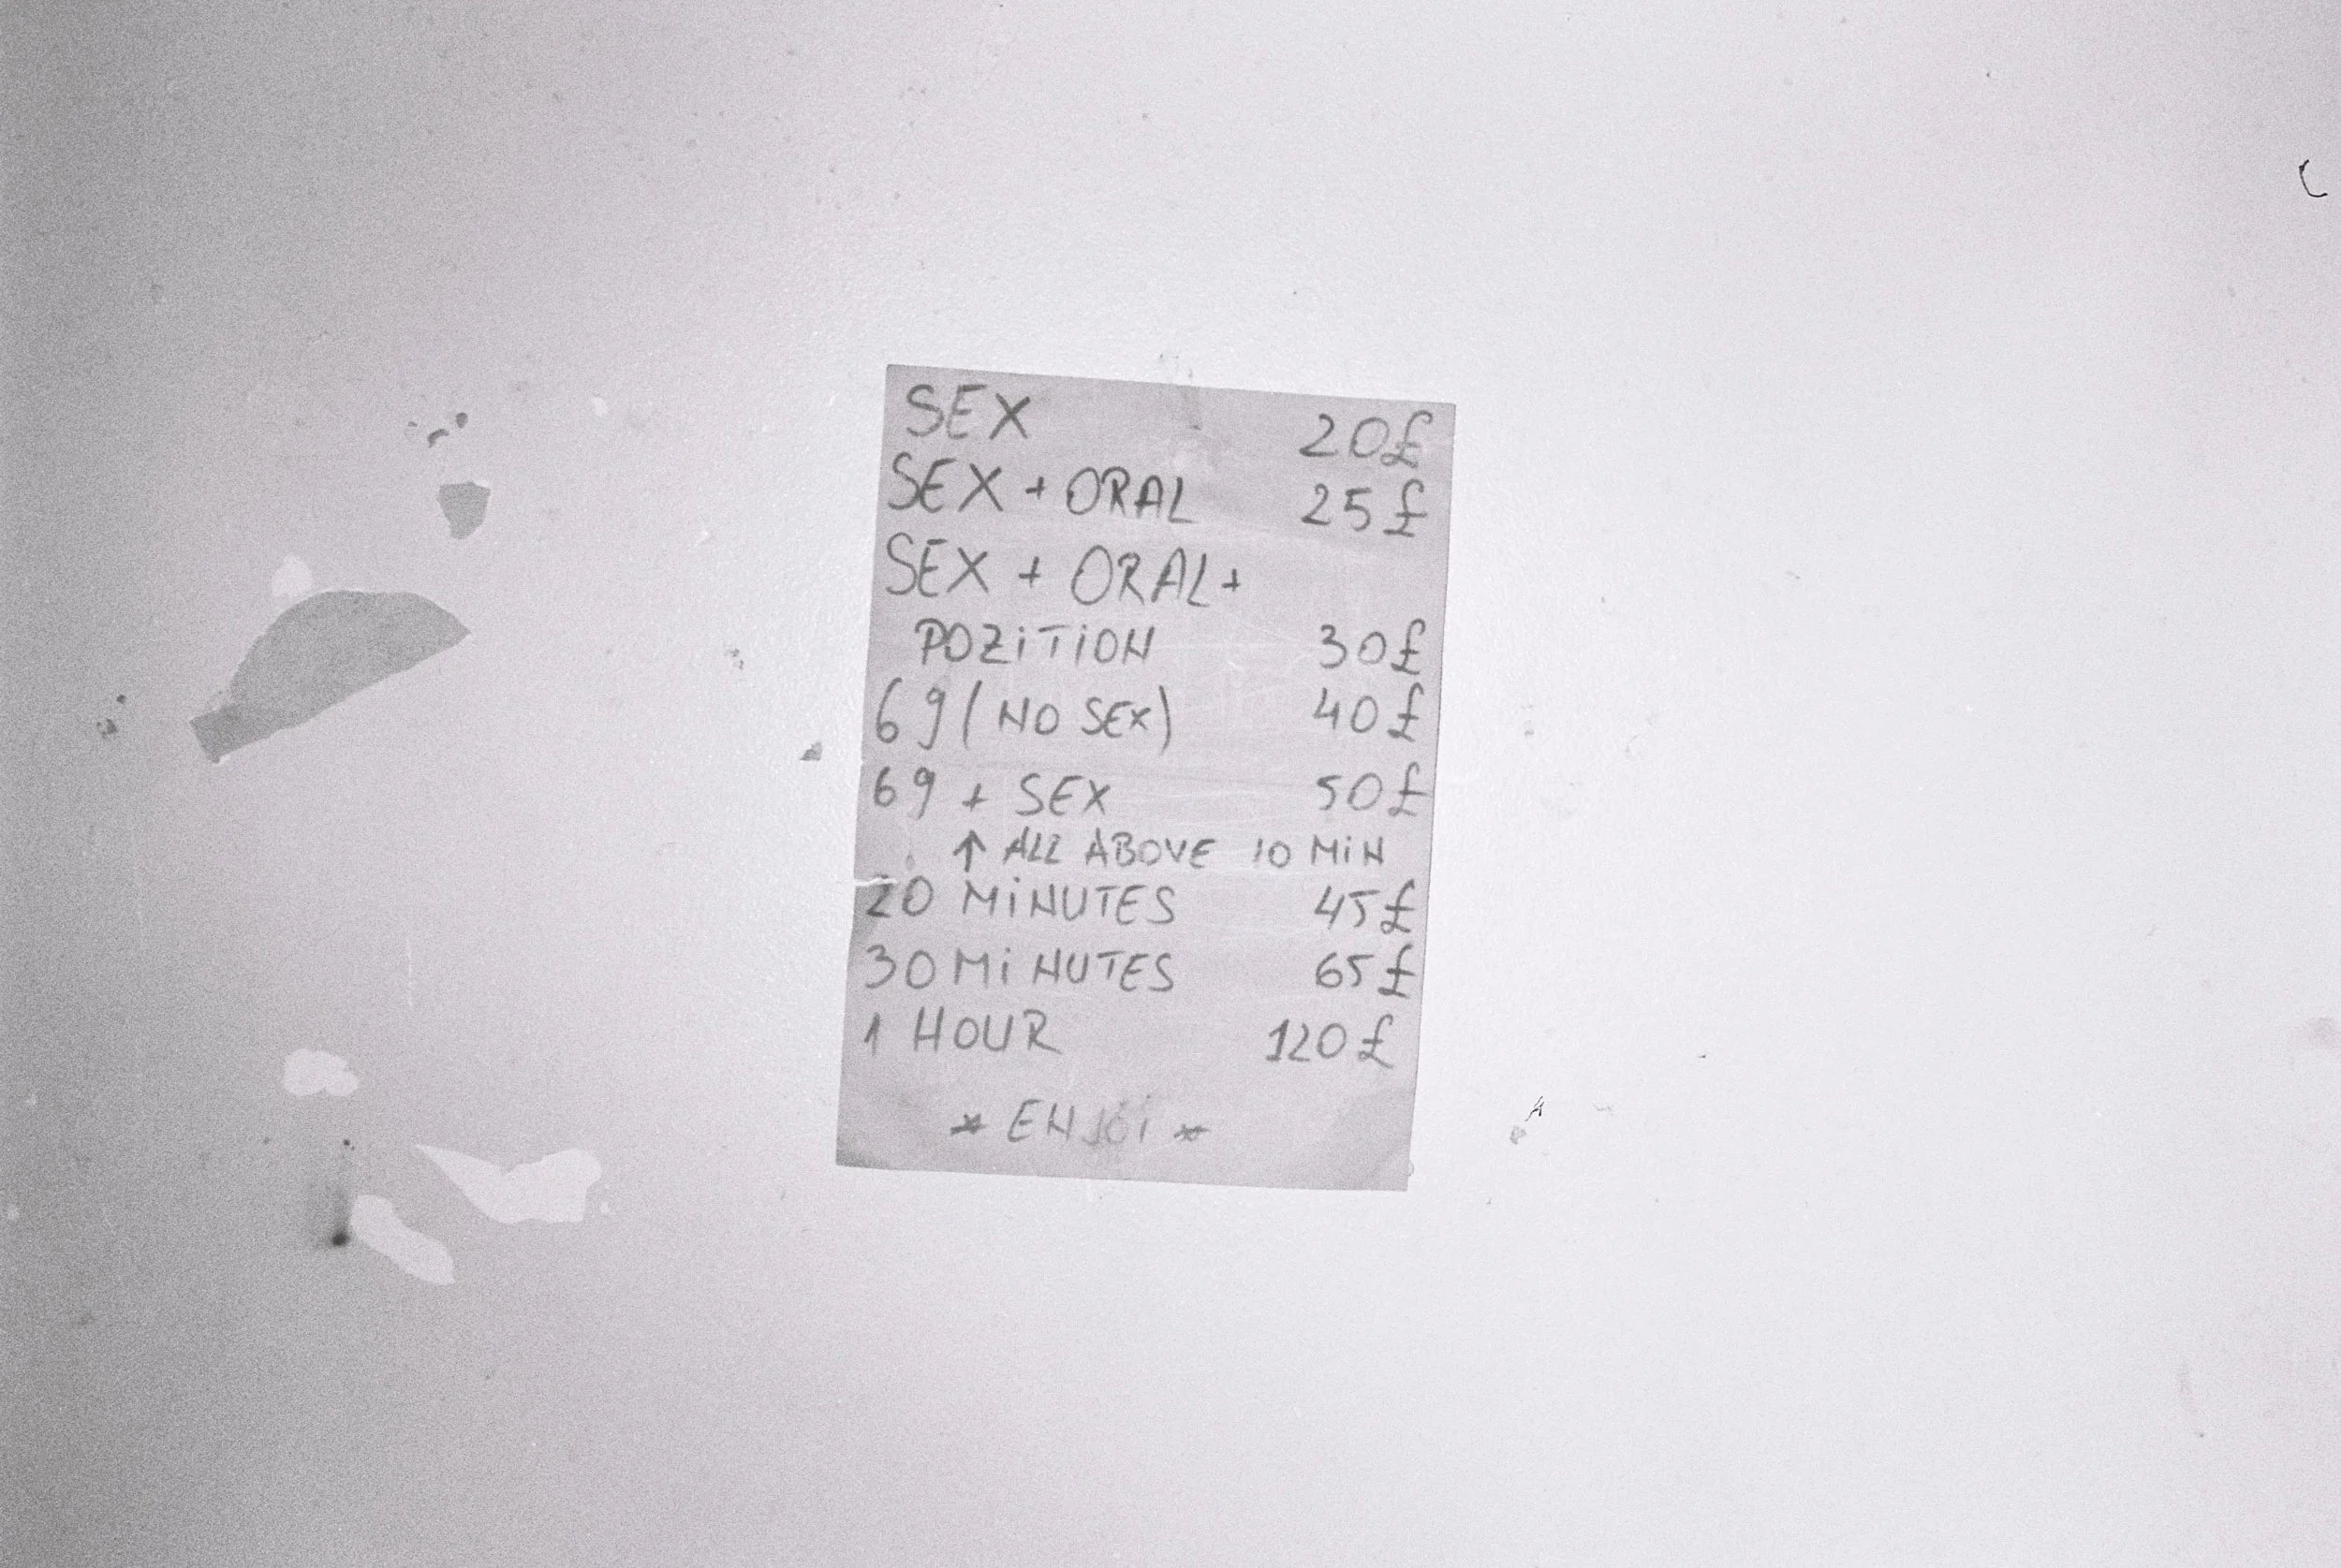 SEX 20£
SEX + ORAL 25£
SEX + ORAL +
POZiTiON 30£
69 (NO SEX) 40£
69 + SEX 50£
↑ ALL ABOVE 10 MiN
20 MiNUTES 45£
30 MiNUTES 65£
1 HOUR 120£
* ENJOi *